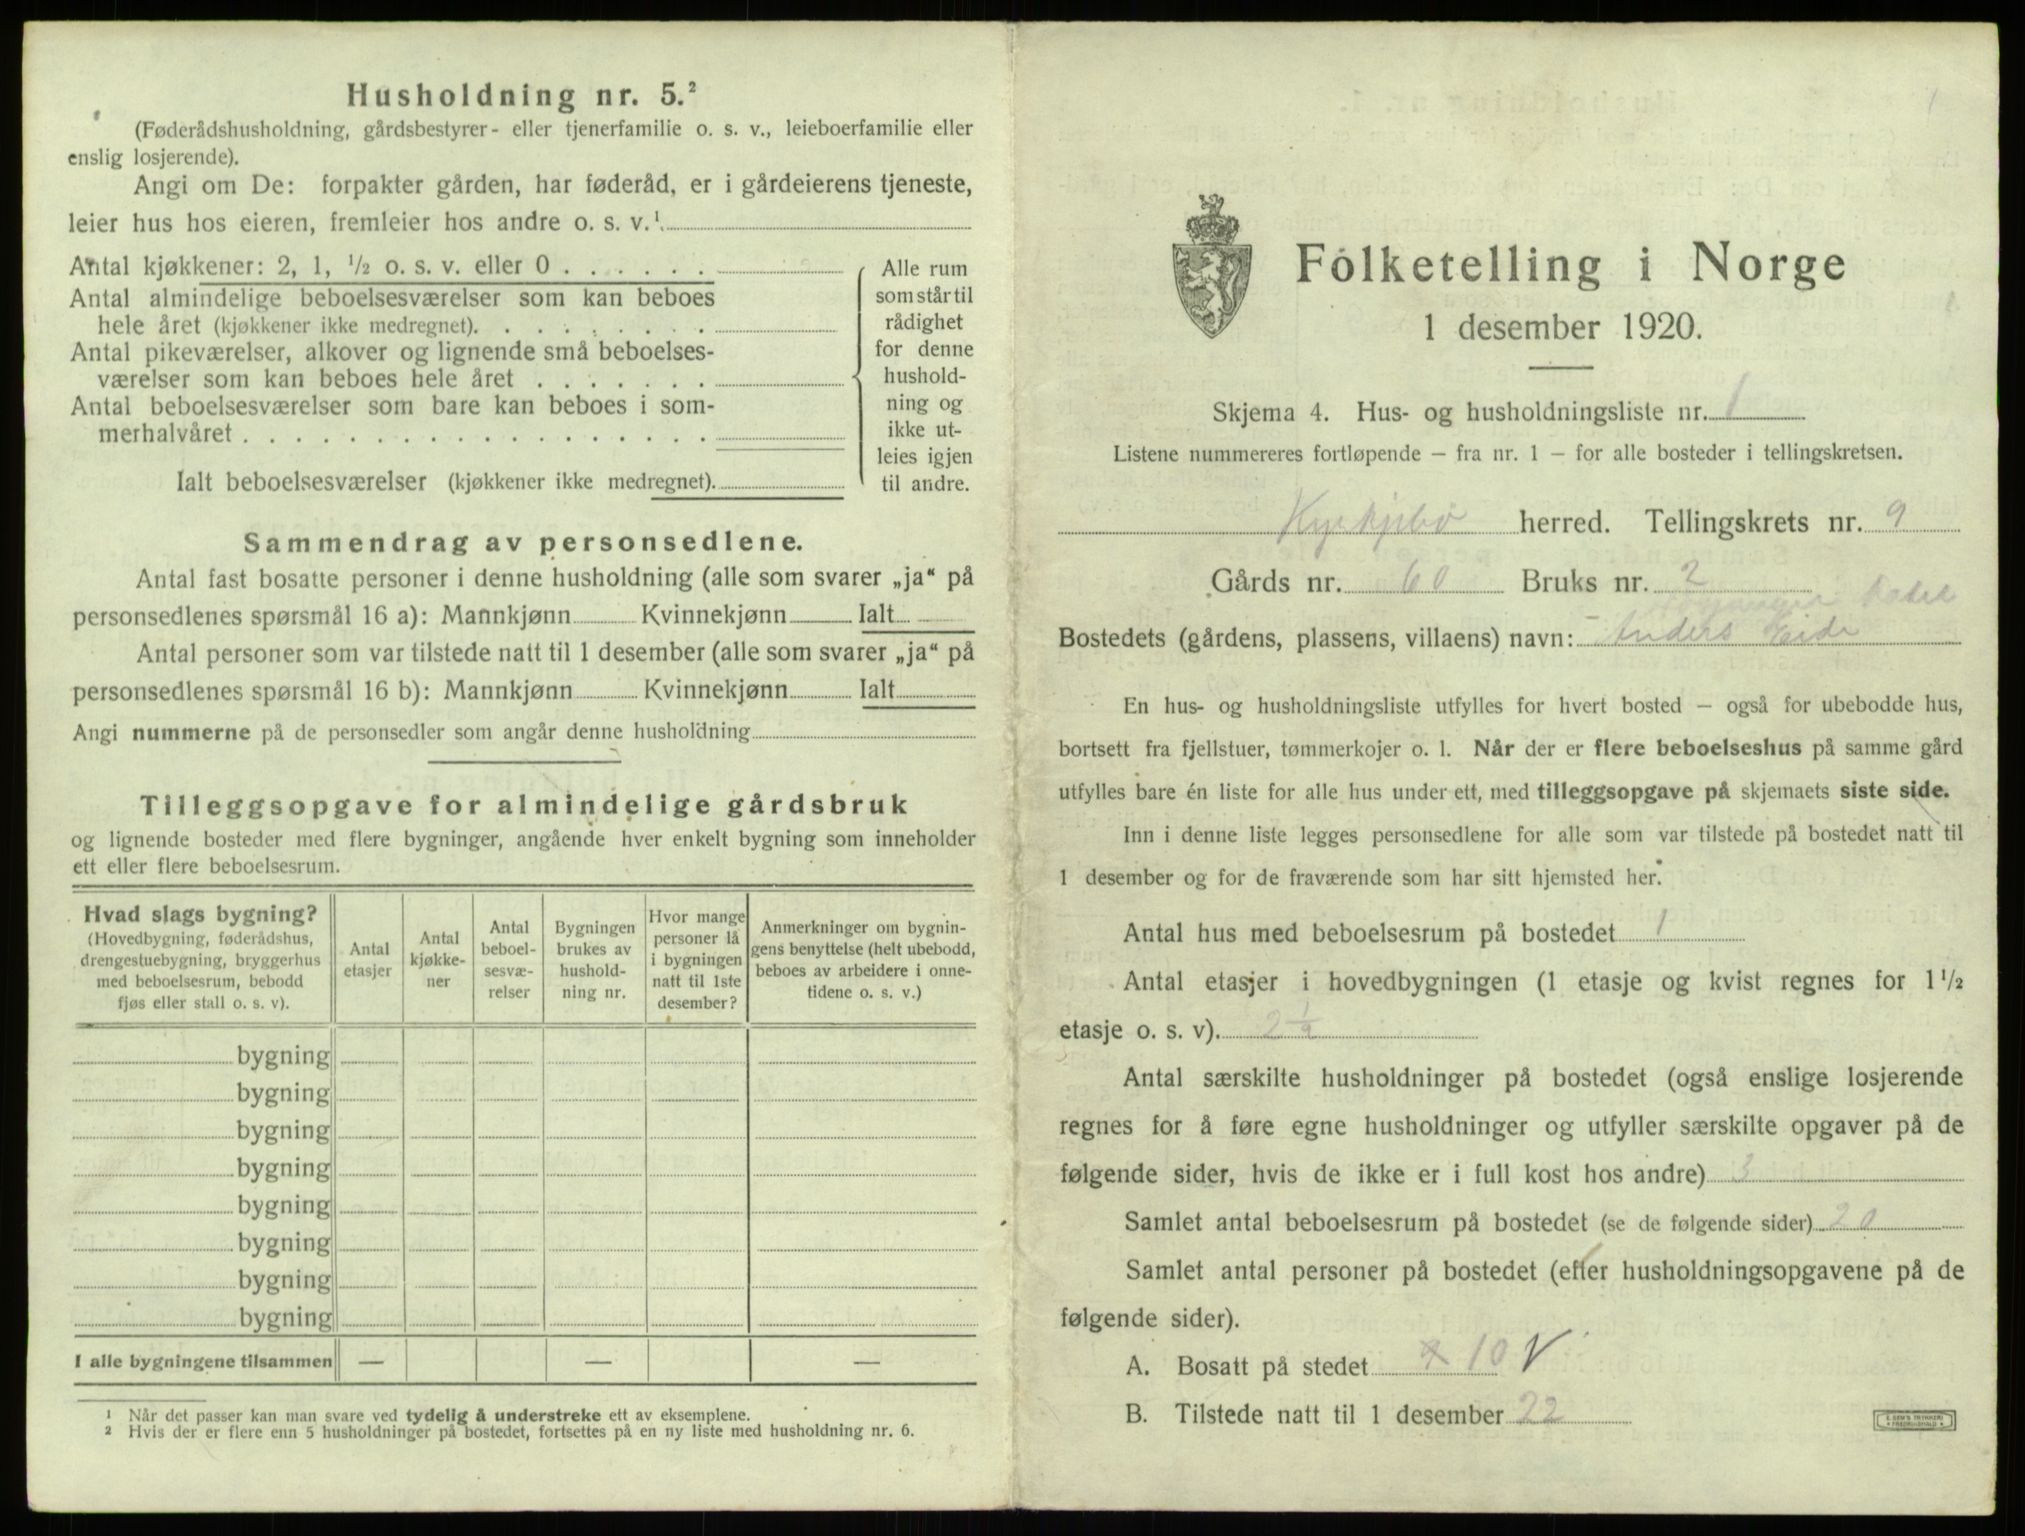 Husholdning nr. 5.²
(Føderådshusholdning, gårdsbestyrer- eller tjenerfamilie o. s. v., leieboerfamilie eller
enslig losjerende).
Angi om De: forpakter gården, har føderåd, er i gårdeierens tjeneste,
leier hus hos eieren, fremleier hos andre o. s. v.¹
Antal kjøkkener: 2, 1, ½ o. s. v. eller 0
Antal almindelige beboelsesværelser som kan beboes
hele året (kjøkkener ikke medregnet).
Antal pikeværelser, alkover og lignende små beboelses-
værelser som kan beboes hele året
Antal beboelsesværelser som bare kan beboes i som-
merhalvåret
Ialt beboelsesværelser (kjøkkener ikke medregnet).
Alle rum
som står til
rådighet
for denne
hushold-
ning og
ikke ut-
leies igjen
til andre.
Sammendrag av personsedlene.
Antal fast bosatte personer i denne husholdning (alle som svarer „ja“ på
personsedlenes spørsmål 16 a): Mannkjønn Kvinnekjønn Ialt
Antal personer som var tilstede natt til 1 desember (alle som svarer „ja“ på
personsedlenes spørsmål 16 b): Mannkjønn Kvinnekjønn Ialt
Angi nummerne på de personsedler som angår denne husholdning
Tilleggsopgave for almindelige gårdsbruk
og lignende bosteder med flere bygninger, angående hver enkelt bygning som inneholder
ett eller flere beboelsesrum.
Hvad slags bygning?
(Hovedbygning, føderådshus,
drengestuebygning, bryggerhus
med beboelsesrum, bebodd
fjøs eller stall o. s. v).
Antal
etasjer
Antal
kjøkke-
ner
Antal
beboel-
sesvæ-
relser
Bygningen
brukes av
hushold-
ning nr.
Hvor mange
personer lå
i bygningen
natt til 1ste
desember?
Anmerkninger om bygnin-
gens benyttelse (helt ubebodd,
beboes av arbeidere i onne-
tidene o. s. v.)
bygning
bygning
bygning
bygning
bygning
bygning
bygning
bygning
I alle bygningene tilsammen — — —
¹ Når det passer kan man svare ved tydelig å understreke ett av eksemplene.
² Hvis der er flere enn 5 husholdninger på bostedet, fortsettes på en ny liste med husholdning nr. 6.
Folketelling i Norge
1 desember 1920.
Skjema 4. Hus- og husholdningsliste nr. 1
Listene nummereres fortløpende — fra nr. 1 — for alle bosteder i tellingskretsen.
Kyrkjebö herred. Tellingskrets nr. 9
Gårds nr. 60 Bruks nr. 2
Bostedets (gårdens, plassens, villaens) navn: Anders Eide
En hus- og husholdningsliste utfylles for hvert bosted — også for ubebodde hus,
bortsett fra fjellstuer, tømmerkojer o. l. Når der er flere beboelseshus på samme gård
utfylles bare én liste for alle hus under ett, med tilleggsopgave på skjemaets siste side.
Inn i denne liste legges personsedlene for alle som var tilstede på bostedet natt til
1 desember og for de fraværende som har sitt hjemsted her.
Antal hus med beboelsesrum på bostedet 1
Antal etasjer i hovedbygningen (1 etasje og kvist regnes for 1 ½
etasje o. s. v). 2 ½
Antal særskilte husholdninger på bostedet (også enslige losjerende
regnes for å føre egne husholdninger og utfyller særskilte opgaver på de
følgende sider, hvis de ikke er i full kost hos andre) 3
Samlet antal beboelsesrum på bostedet (se de følgende sider) 20
Samlet antal personer på bostedet (efter husholdningsopgavene på de
følgende sider).
A. Bosatt på stedet 10 V
B. Tilstede natt til 1 desember 22